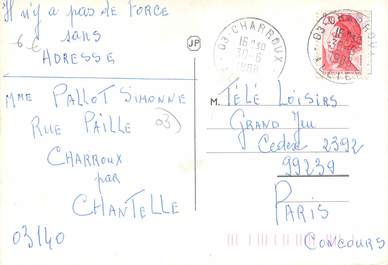 Il n'y a pas de FORCE
sans
ADRESSE
6 €
MME PALLOT SIMONNE
RUE PAILLE
03
CHARROUX
par
CHANTELLE
03140
JP
03-CHARROUX
16 H30
30-6
1988
M. TÉLÉ LOISIRS
GRAND JEU
Cedex 2392
99239
PARIS
CONCOURS